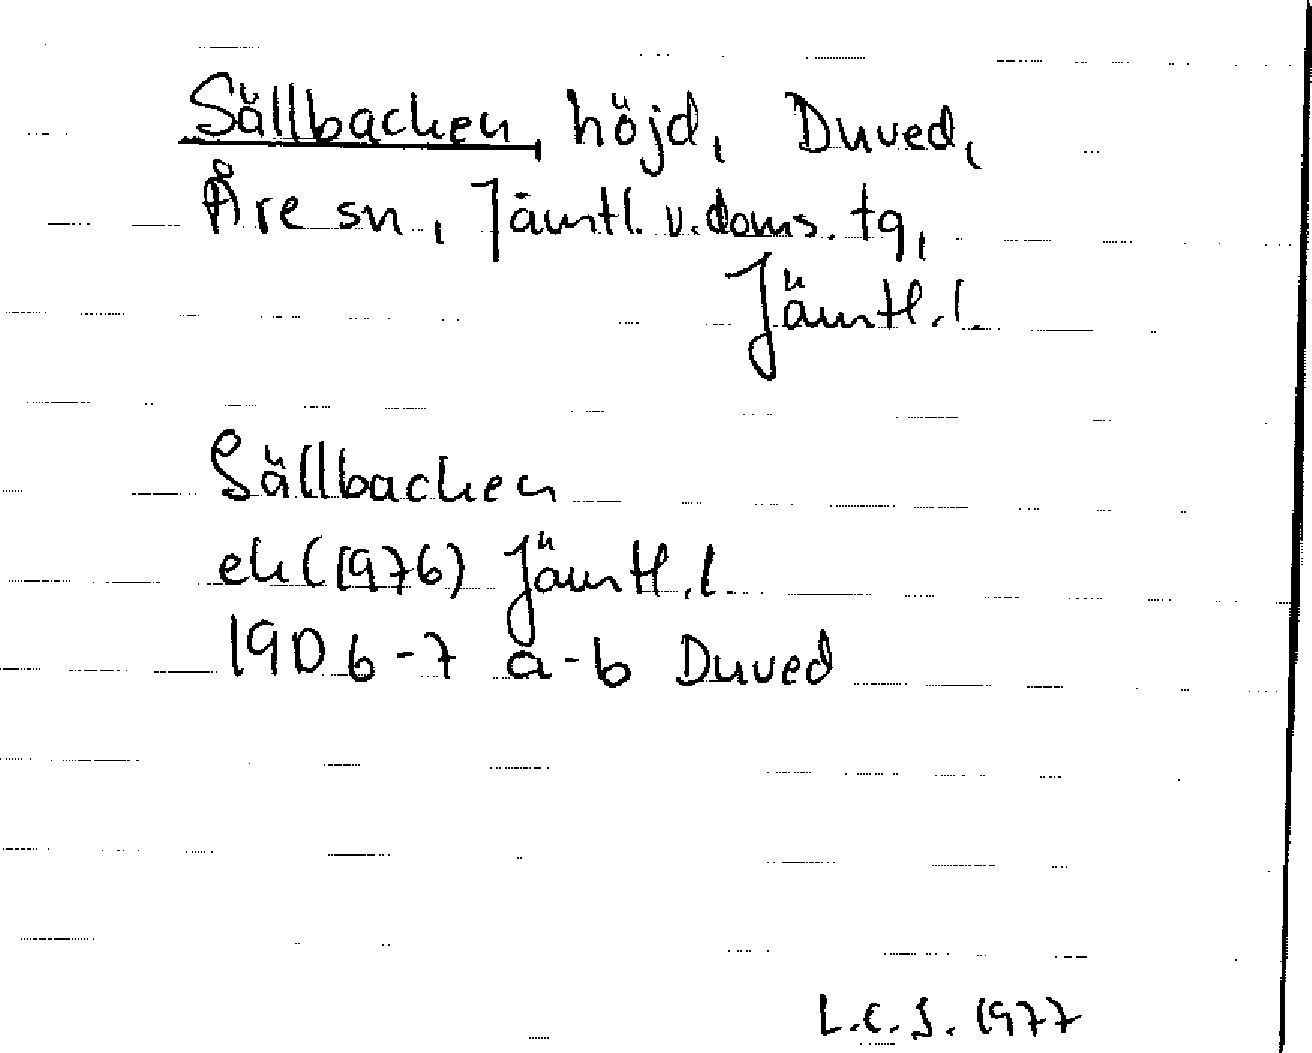 Sällbacken, höjd, Duved,
Åre sn, Jämtl. v. doms. tg,
Jämtl. l.
Sällbacken
ek (1976) Jämtl. l.
19D 6-7 a-b Duved
L.C.S. 1977